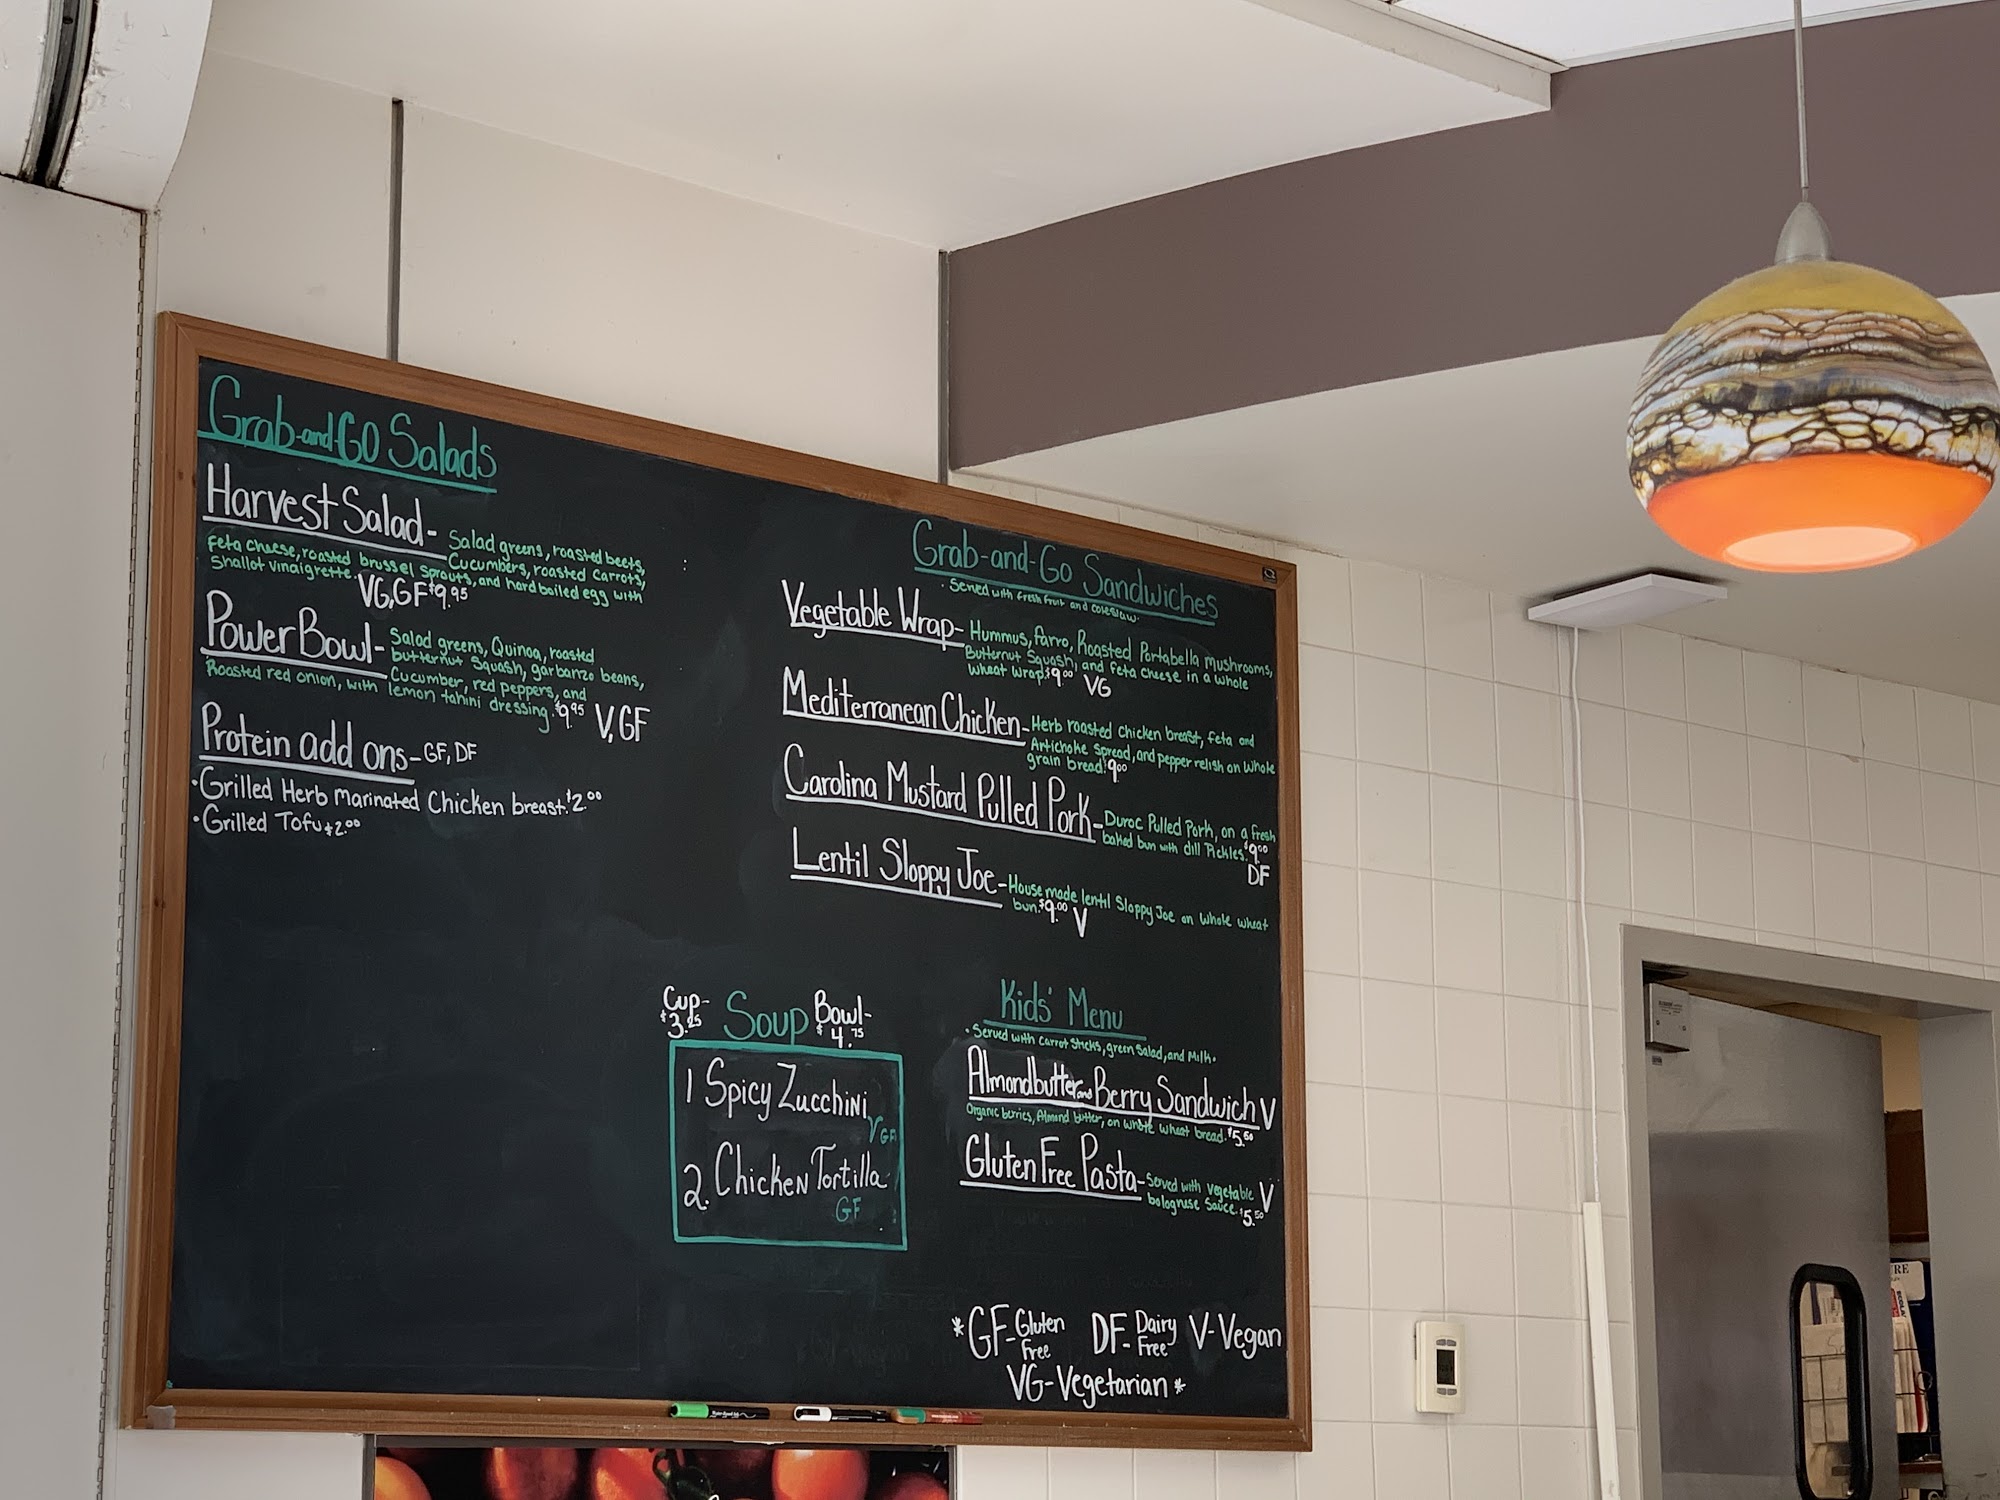 Grab-and-GO Salads
Harvest Salad- Salad greens, roasted beets,
Cucumbers, roasted carrots,
feta cheese, roasted brussel sprouts, and hard boiled egg with
Shallot vinaigrette. VG, GF $9.95
Power Bowl- Salad greens, Quinoa, roasted
butternut Squash, garbanzo beans,
Cucumber, red peppers, and
Roasted red onion, with lemon tahini dressing. $9.95 V, GF
Protein add ons- GF, DF
•Grilled Herb marinated Chicken breast. $2.00
•Grilled Tofu $2.00
Grab-and-Go Sandwiches
• Served with fresh fruit and coleslaw.
Vegetable Wrap- Hummus, farro, Roasted Portabella mushrooms,
Butternut Squash, and feta cheese in a whole
wheat wrap. $9.00 VG
Mediterranean Chicken- Herb roasted chicken breast, feta and
Artichoke Spread, and pepper relish on whole
grain bread. $9.00
Carolina Mustard Pulled Pork- Duroc Pulled Pork, on a fresh
baked bun with dill Pickles. $9.00
DF
Lentil Sloppy Joe- House made lentil Sloppy Joe on whole wheat
bun. $9.00 V
Cup- $3.25 Soup Bowl- $4.75
1 Spicy Zucchini
V GF
2. Chicken Tortilla
GF
Kids' Menu
• Served with carrot sticks, green salad, and Milk.
Almondbutter and Berry Sandwich V
Organic berries, Almond butter, on whole wheat bread. $5.50
Gluten Free Pasta- Served with vegetable V
bolognese sauce. $5.50
*GF- Gluten Free DF- Dairy Free V- Vegan
VG- Vegetarian *